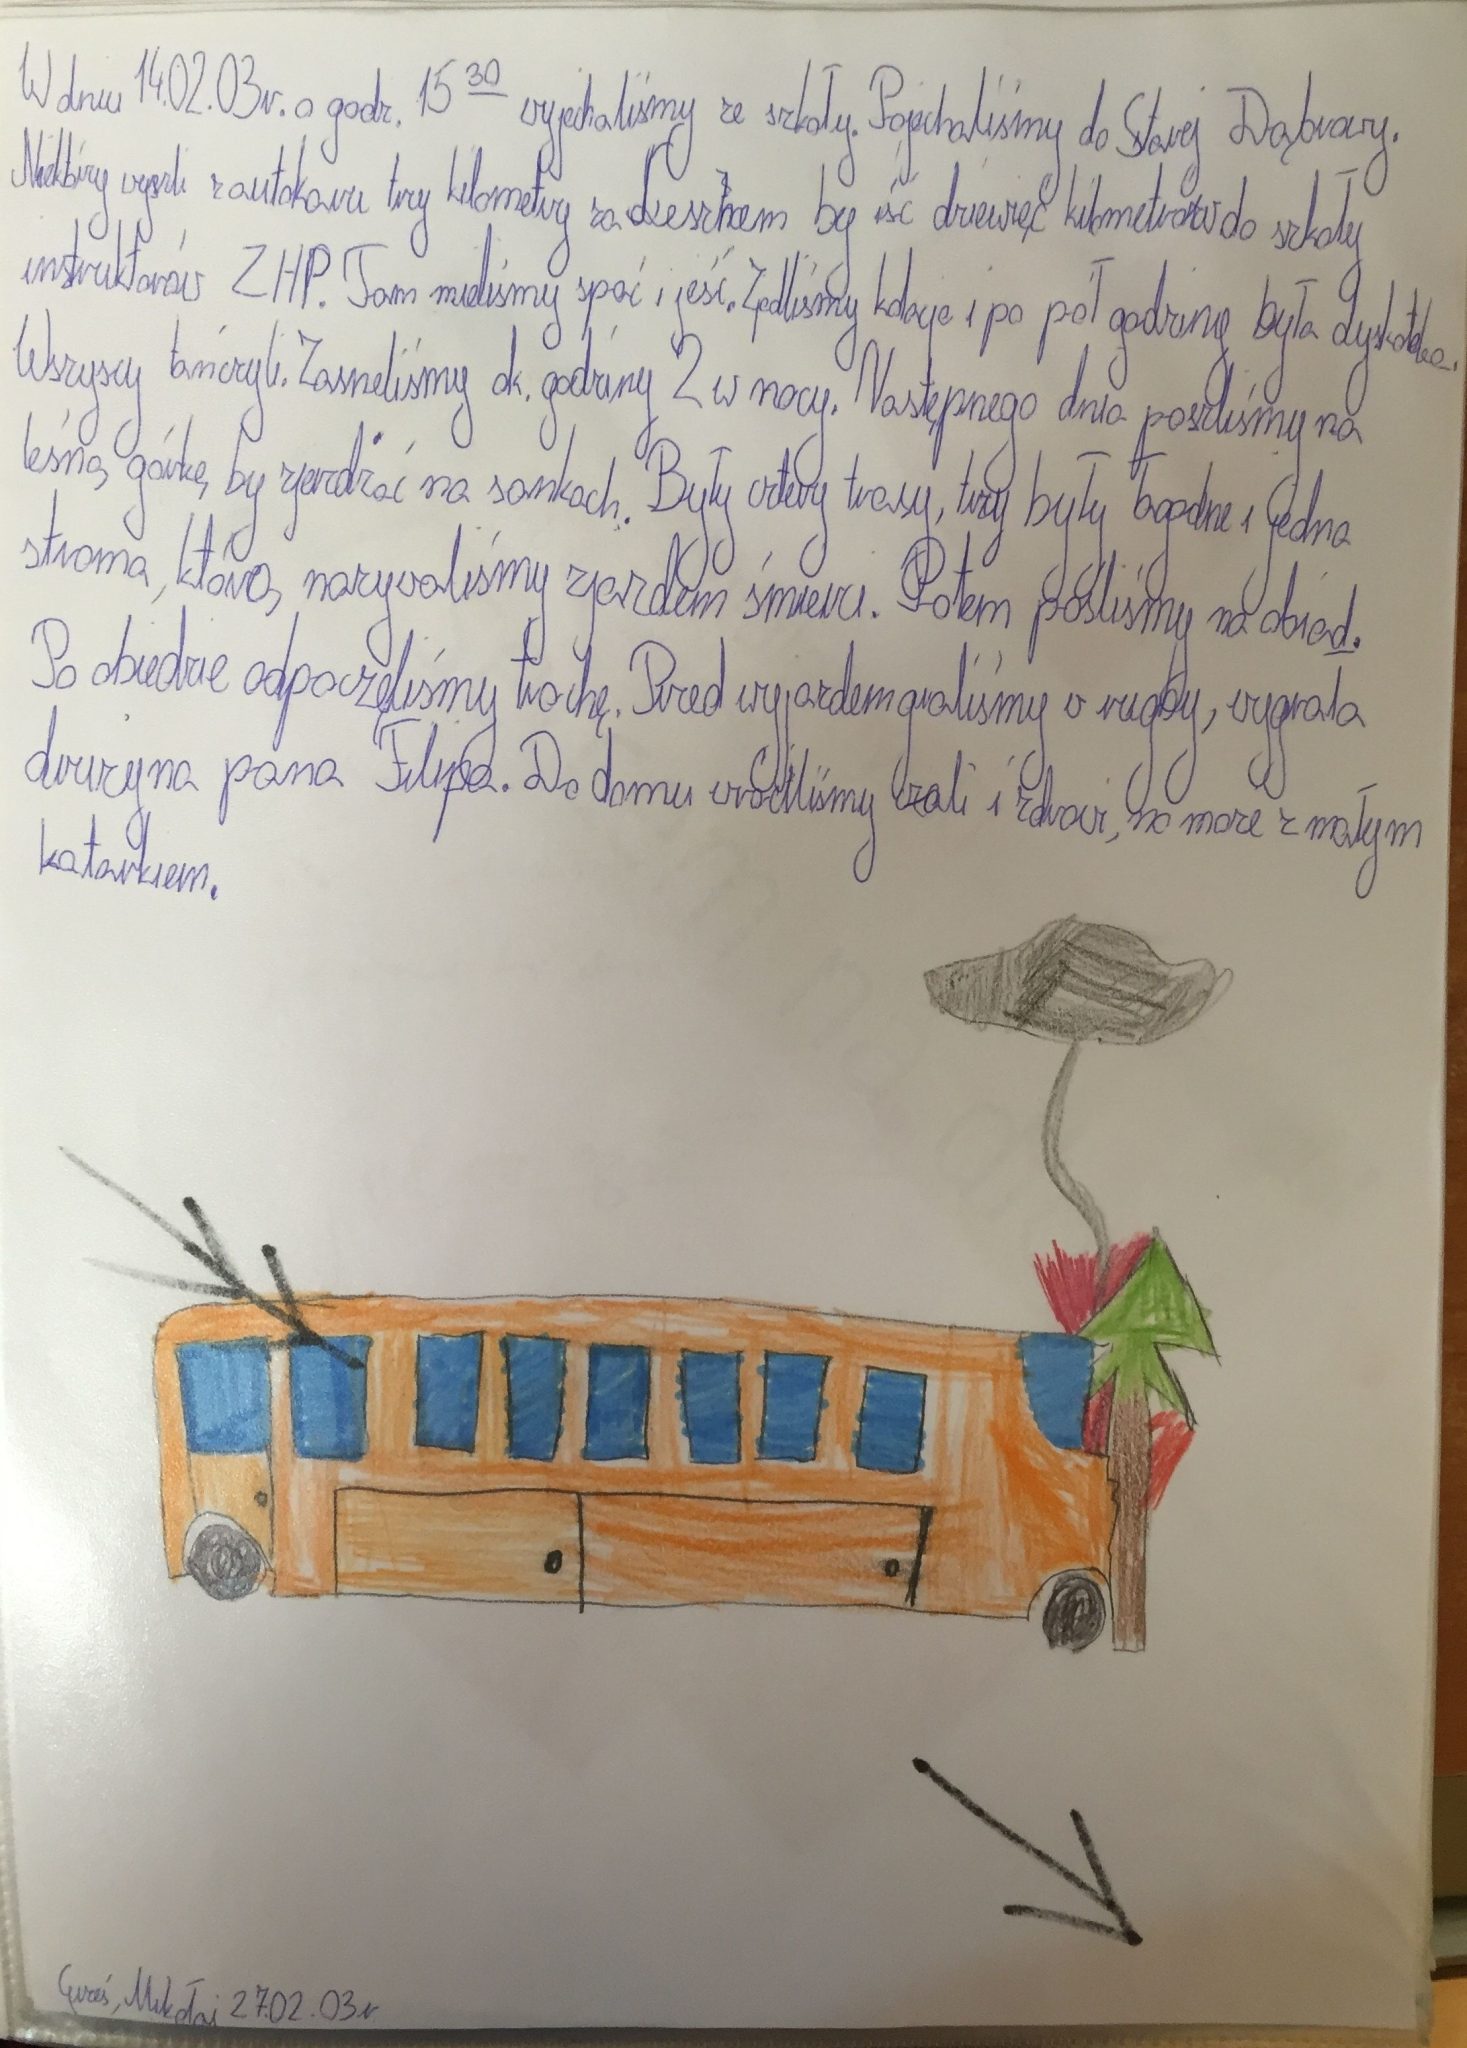 W dniu 14.02.03r. o godz. 15 30 wyjechaliśmy ze szkoły. Pojechaliśmy do Starej Dąbrowy.
Niektórzy wyszli z autokaru trzy kilometry za by iść dziewięć kilometrów do szkoły
instruktorów ZHP. Tam mieliśmy spać i jeść. Zjedliśmy kolację i po pół godzinie była dyskoteka.
Wszyscy tańczyli. Zasneliśmy ok. godziny 2 w nocy. Następnego dnia poszliśmy na
leśną górkę, by zjerdżać na sankach. Były cztery trasy, trzy były łagodne i jedna
stroma, którą nazywaliśmy zjazdem śmierci. Potem pośliśmy na obiad.
Po obiedzie odpoczęliśmy trochę. Przed wyjazdem graliśmy w rugby, wygrała
drużyna pana Filipa. Do domu wróciliśmy cali i zdrowi, no może z małym
katarkiem.
Mikołaj 27.02.03r